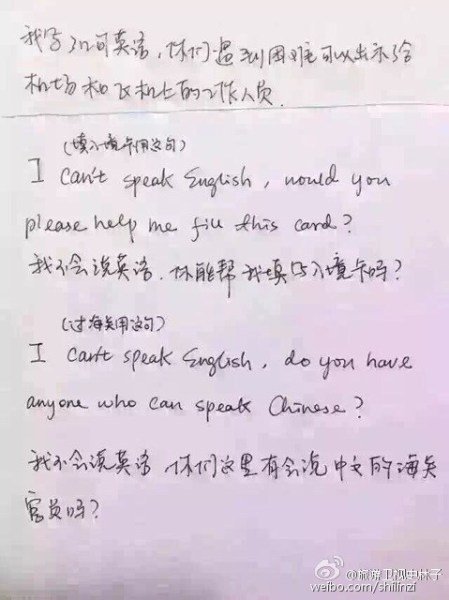 我写了几句英语，你们遇到困难可以出示给
机场和飞机上的工作人员.
(填入境卡用这句)
I can't speak English, would you
please help me fill this card?
我不会说英语，你能帮我填写入境卡吗?
(过海关用这句)
I can't speak English, do you have
anyone who can speak Chinese?
我不会说英语，你们这里有会说中文的海关
官员吗?
@旅游卫视史林子
weibo.com/shilinzi